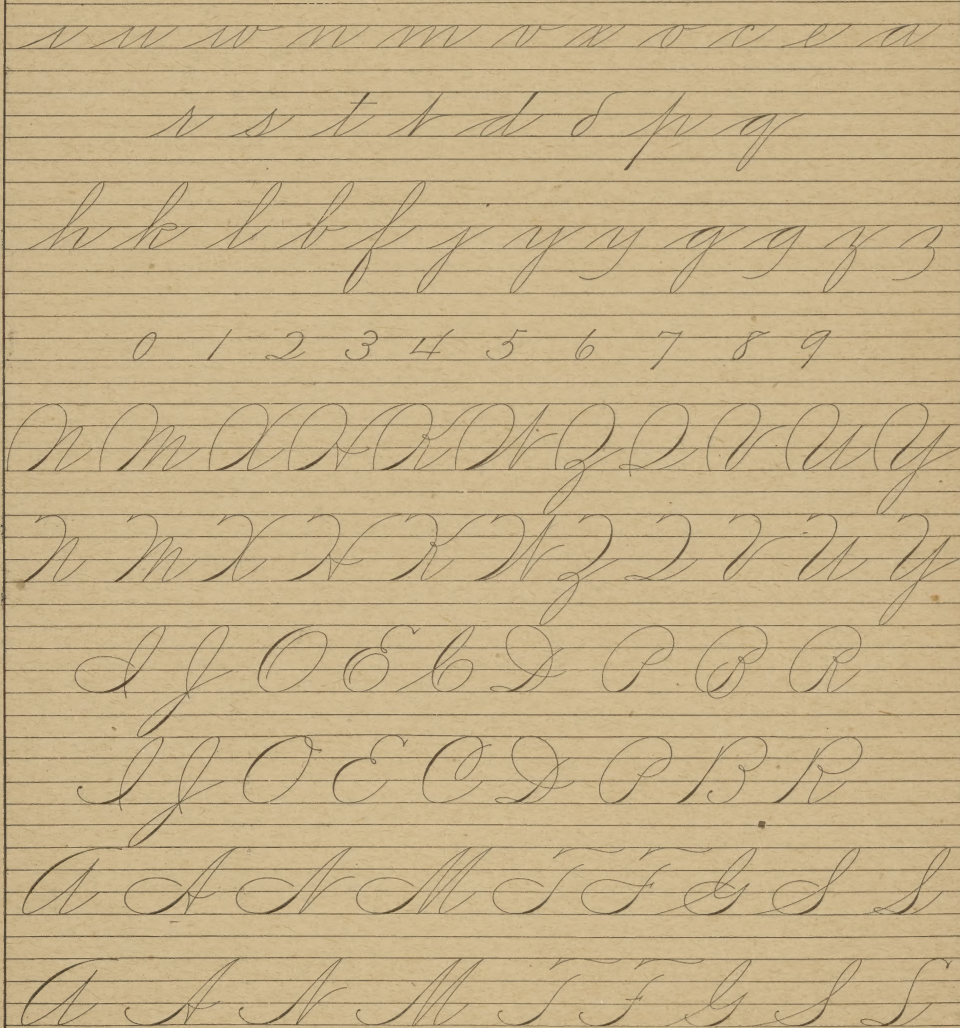 i u w n m v x o c e a
r s t t d d p q
h k l b f j y y g g z z
0 1 2 3 4 5 6 7 8 9
N M X H K W Z Q V U Y
N M X H K W Z Q V U Y
I J O E C D P B R
I J O E C D P B R
A A N M T F G S L
A A N M T F G S L